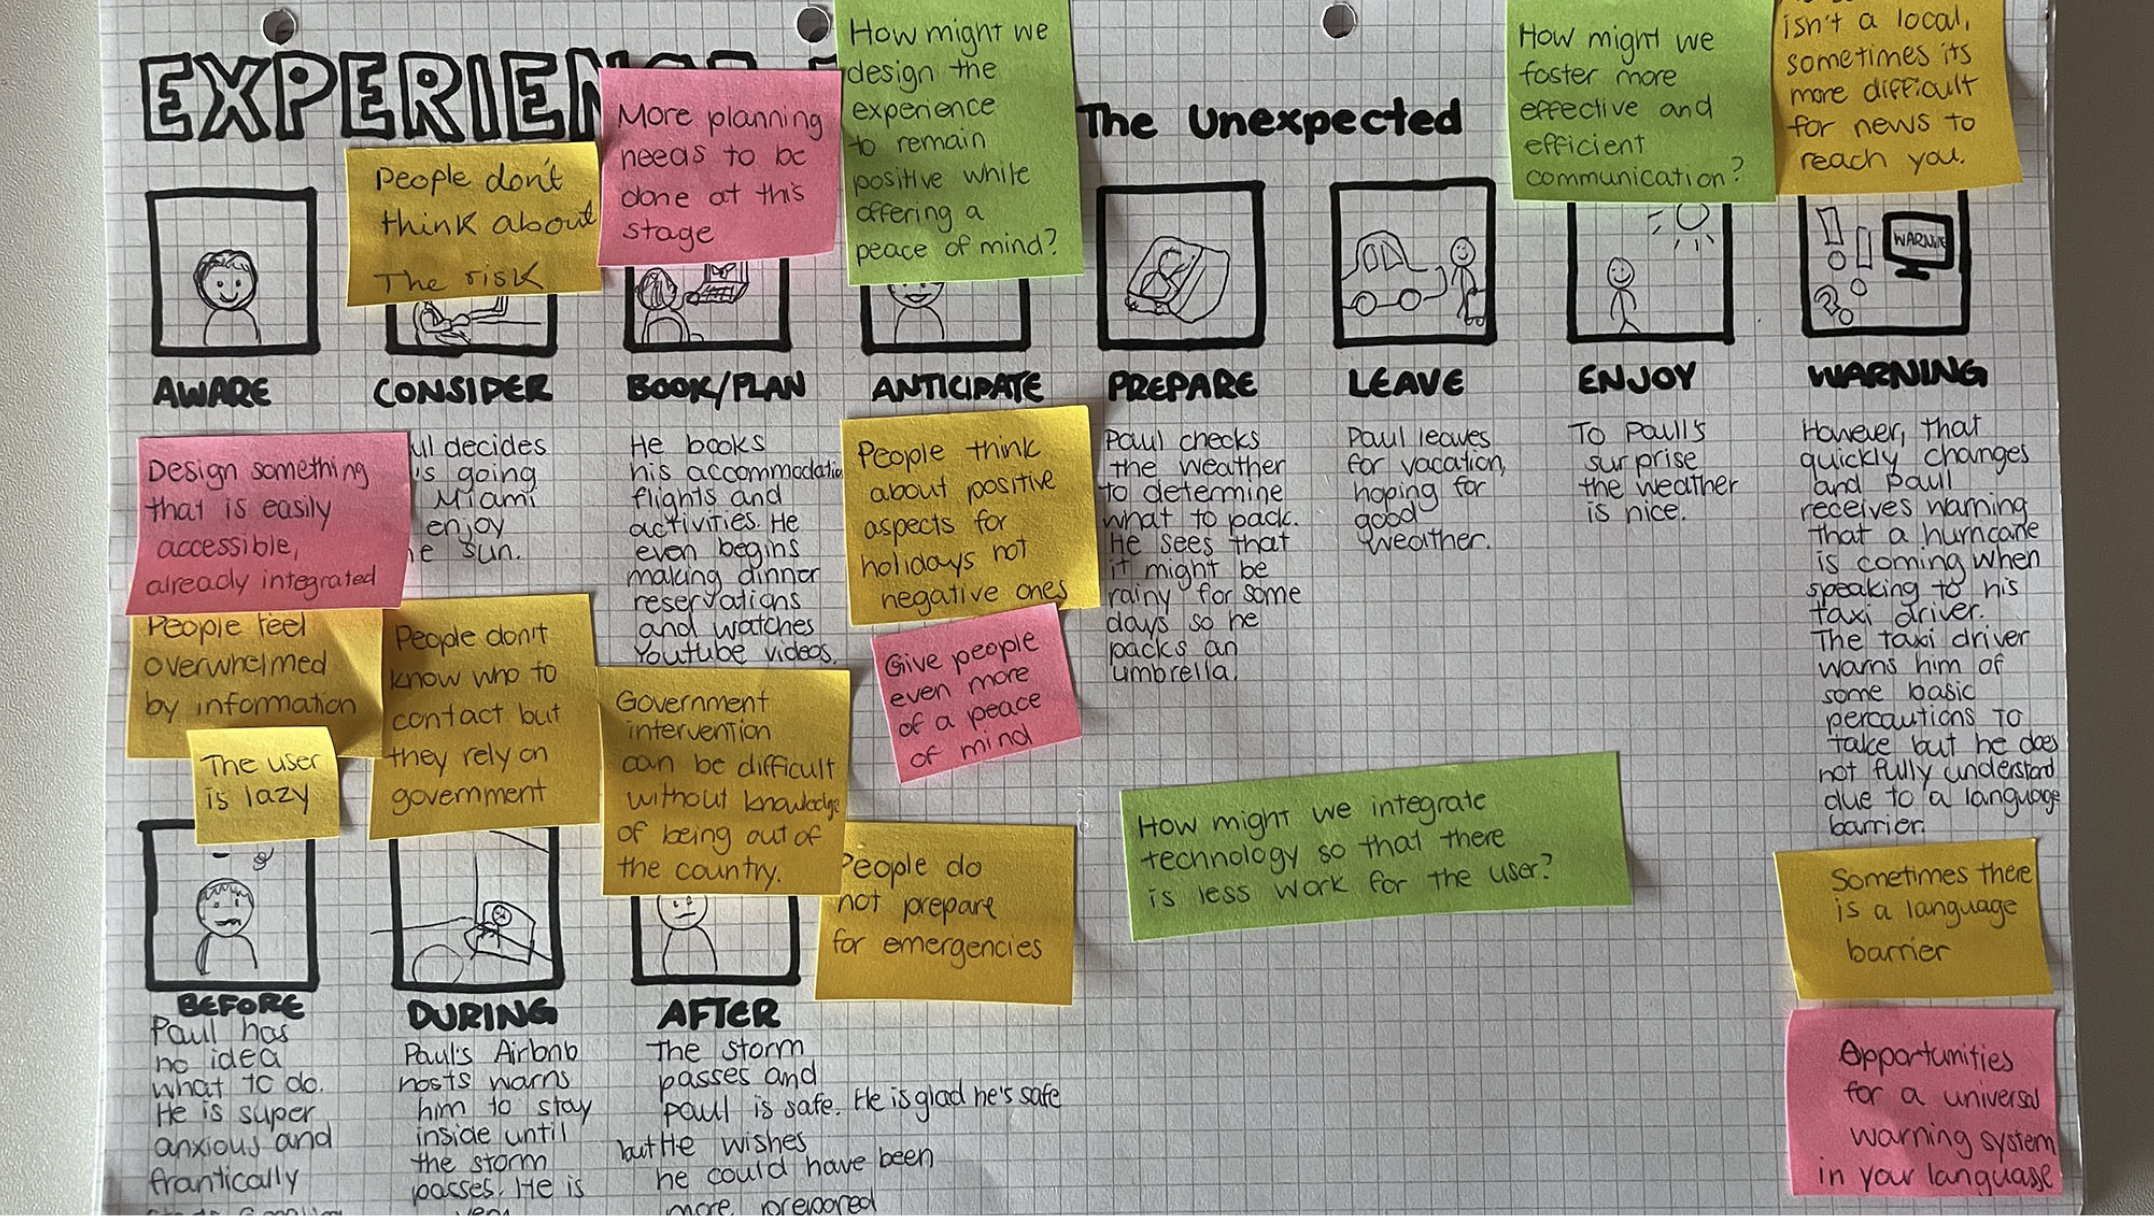 EXPERIEN
The Unexpected
More planning
needs to be
done at this
stage
How might we
design the
experience
to remain
positive while
offering a
peace of mind?
How might we
foster more
effective and
efficient
communication?
isn't a local,
sometimes its
more difficult
for news to
reach you.
People don't
think about
The risk
WARNING
AWARE
CONSIDER
BOOK/PLAN
ANTICIPATE
PREPARE
LEAVE
ENJOY
WARNING
Design something
that is easily
accessible,
already integrated
decides
going
Miami
enjoy
sun.
He books
his accommodation
flights and
activities. He
even begins
making dinner
reservations
and watches
Youtube videos.
People think
about positive
aspects for
holidays not
negative ones
Paul checks
the weather
to determine
what to pack.
He sees that
it might be
rainy for some
days so he
packs an
umbrella.
Paul leaves
for vacation,
hoping for
good
weather.
To Paul's
surprise
the weather
is nice.
However, that
quickly changes
and Paul
receives warning
that a hurricane
is coming when
speaking to his
taxi driver.
The taxi driver
warns him of
some basic
percautions to
take but he does
not fully understand
due to a language
barrier.
People feel
overwhelmed
by information
The user
is lazy
People don't
know who to
contact but
they rely on
government
Government
intervention
can be difficult
without knowledge
of being out of
the country.
Give people
even more
of a peace
of mind
People do
not prepare
for emergencies
How might we integrate
technology so that there
is less work for the user?
Sometimes there
is a language
barrier
Opportunities
for a universal
warning system
in your language
BEFORE
Paul has
no idea
what to do.
He is super
anxious and
frantically
DURING
Paul's Airbnb
hosts warns
him to stay
inside until
the storm
passes. He is
very
AFTER
The storm
passes and
Paul is safe. He is glad he's safe
but He wishes
he could have been
more prepared